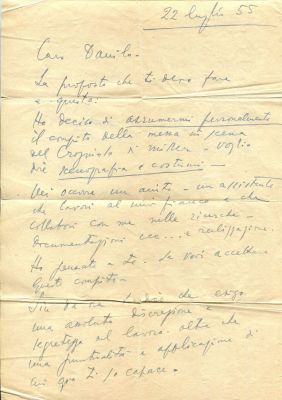 22 luglio 55
Caro Danilo -
La proposta che ti devo fare
è questa:
Ho deciso di assumermi personalmente
il compito della messa in scena
del Crogiuolo di Miller - Voglio
dire scenografia e costumi -
Mi occorre un aiuto - un assistente
che lavori al mio fianco e che
collabori con me nelle ricerche -
documentazioni ecc... e realizzazione.
Ho pensato a te. Se vuoi accettare
questo compito -
che esigo
una assoluta discrezione e
segretezza al lavoro oltre che
una puntualità e applicazione di
cui già ti so capace.